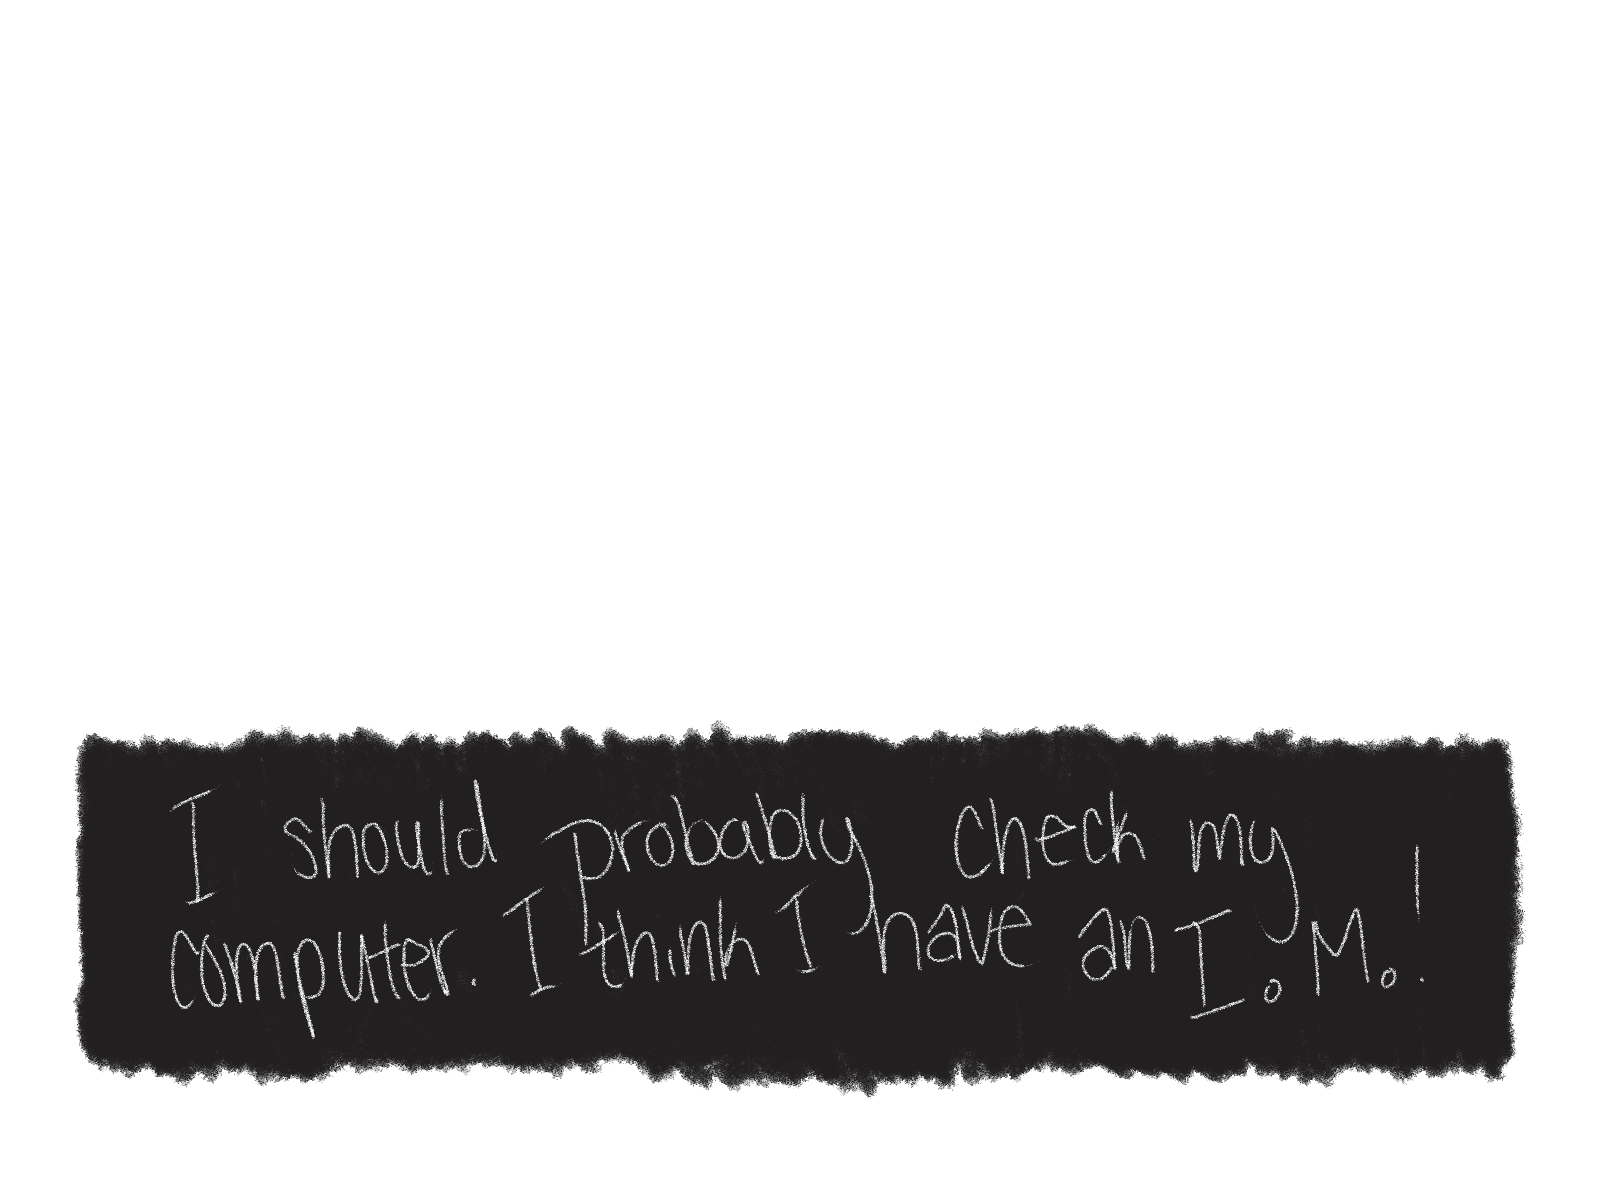 I should probably check my
computer. I think I have an I.M.!